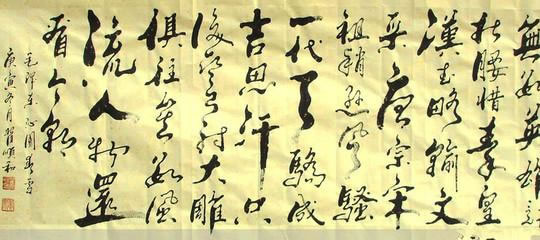 無数英雄竞
折腰惜秦皇
漢武略輸文
采唐宗宋
祖稍遜風騷
一代天驕成
吉思汗只
識弯弓射大雕
俱往矣数風
流人物還
看今朝
毛澤東沁園春雪
庚寅冬月